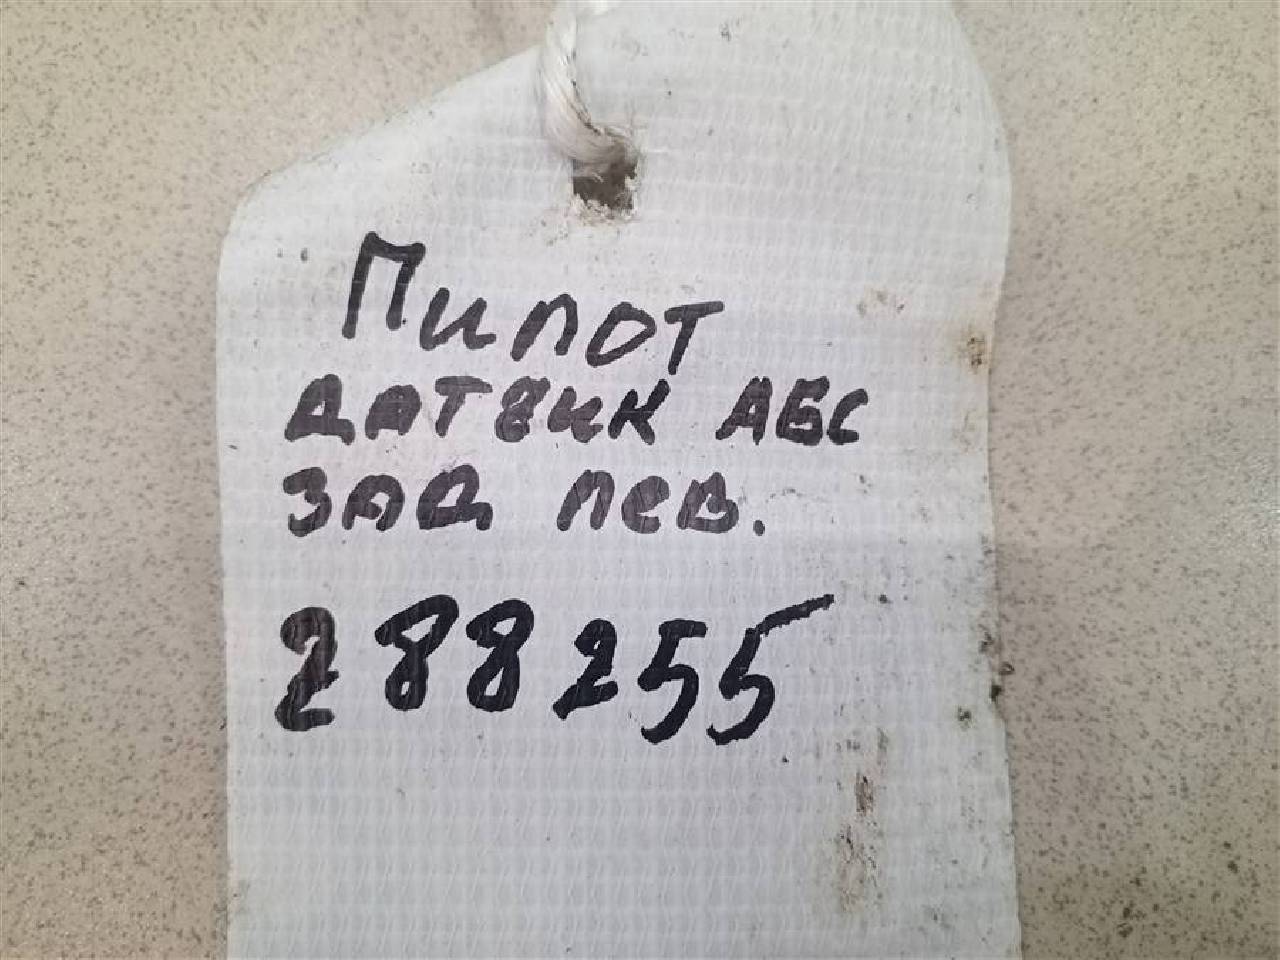 Пилот
ДАТЧИК АБС
ЗАД лев.
288255